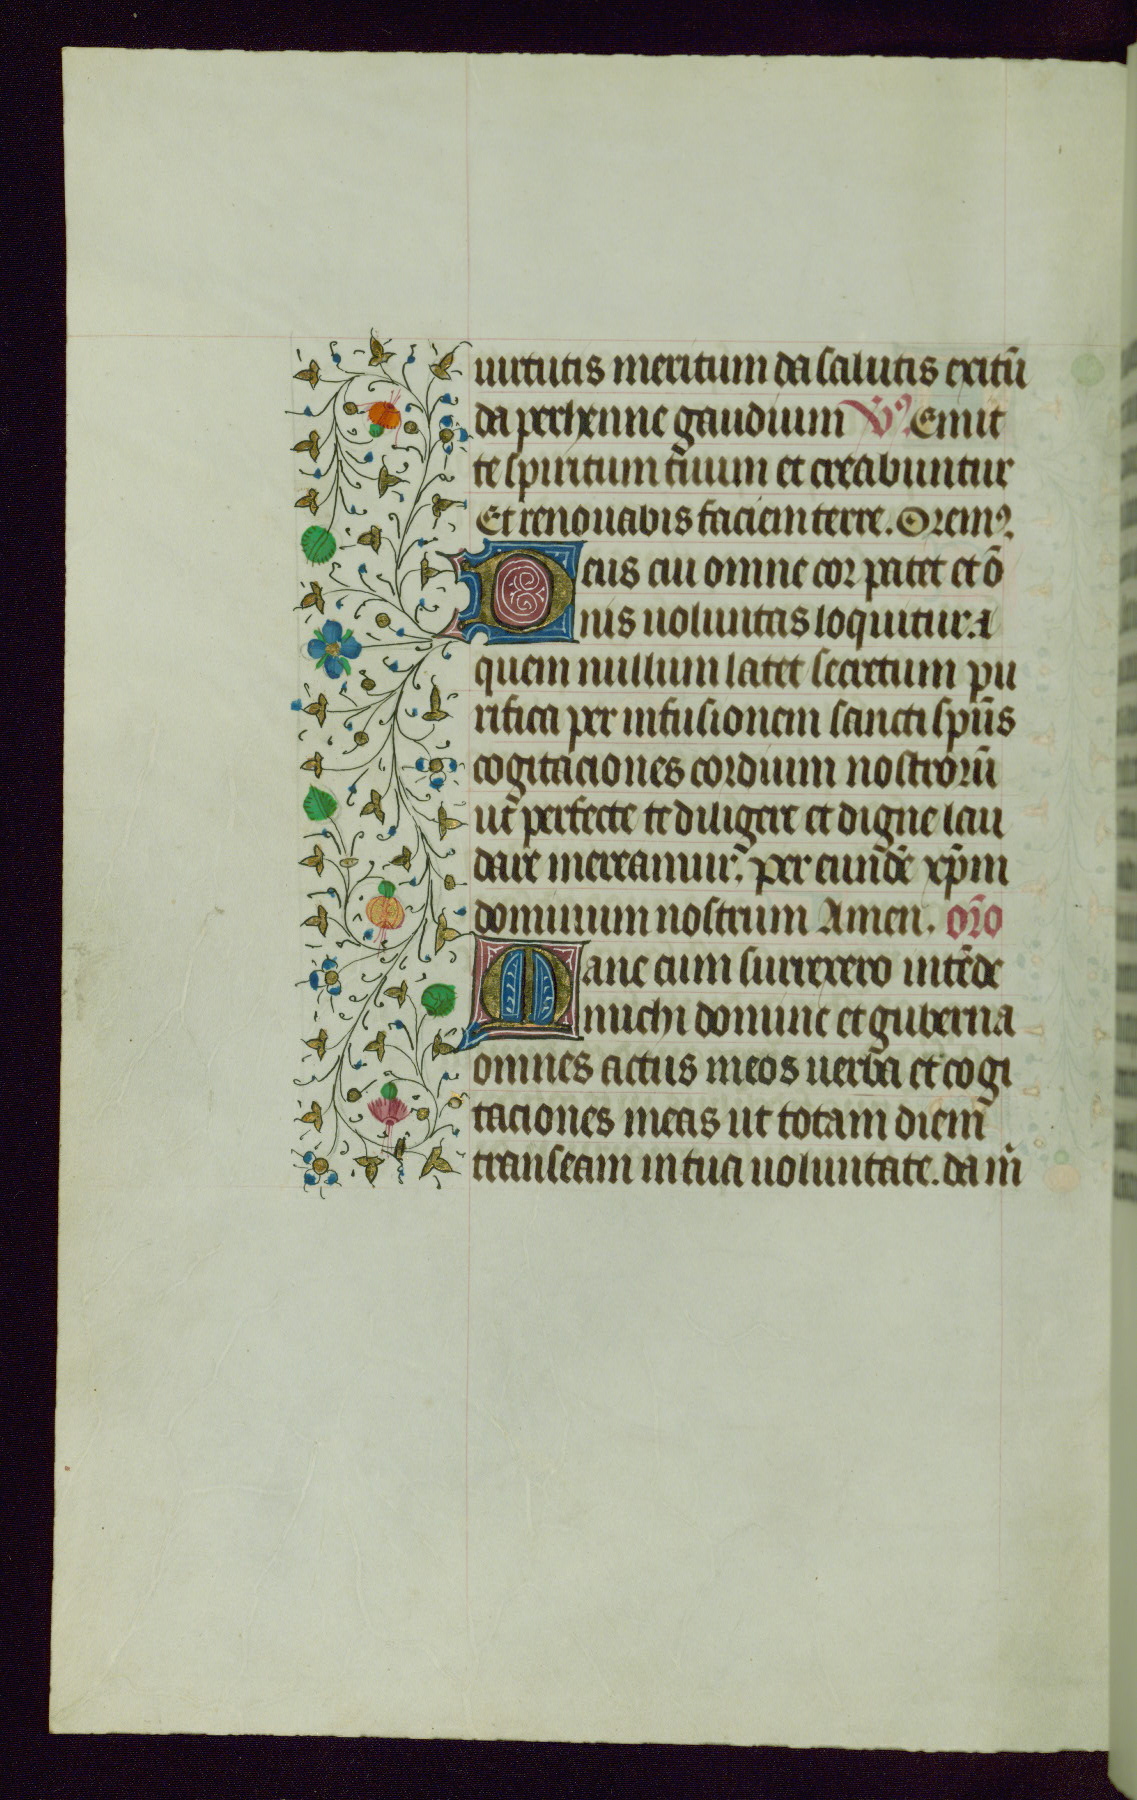 uirtutis meritum da salutis exitū
da perhenne gaudium V̉ꝰ. Emit
te spiritum tuum et creabuntur
Et renouabis faciem terre. Oremꝰ.
Deus cui omne cor patet et ō
nis uoluntas loquitur. a
quem nullum latet secretum pu
rifica per infusionem sancti spūs
cogitaciones cordium nostrorū
ut perfecte te diligere et digne lau
dare mereamur. per eundē xp̄m
dominum nostrum Amen. orō
Mane cum surrexero intēde
michi domine et guberna
omnes actus meos uerba et cogi
taciones meas ut totam diem
transeam in tua uoluntate. da m̄